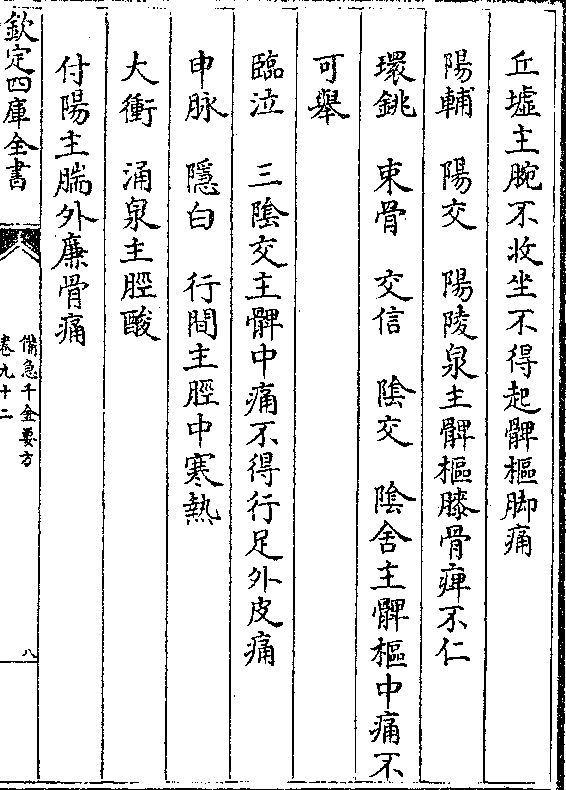 丘墟主腕不收坐不得起髀樞脚痛
陽輔　陽交　陽陵泉主髀樞膝骨痺不仁
環銚　束骨　交信　陰交　陰舍主髀樞中痛不
可舉
臨泣　三陰交主髀中痛不得行足外皮痛
申脉　隱白　行間主脛中寒熱
大衝　涌泉主脛酸
付陽主腨外廉骨痛
欽定四庫全書
備急千金要方
卷九十二
八